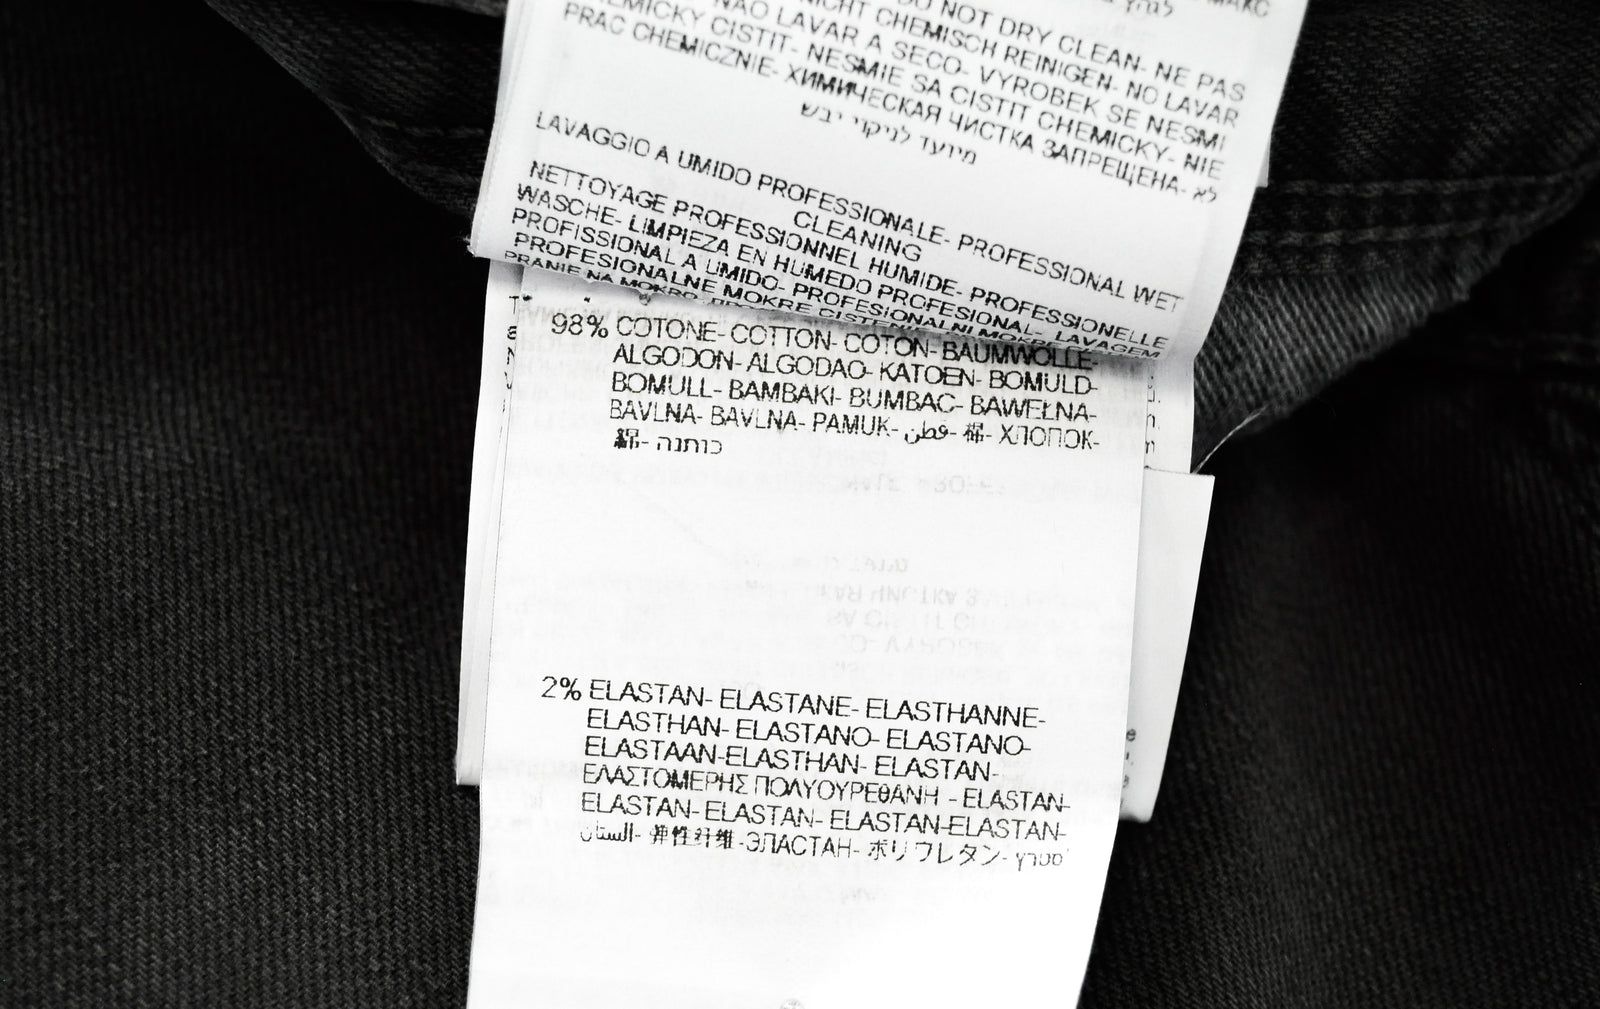 МАКС
לגהץ
DO NOT DRY CLEAN- NE PAS
NICHT CHEMISCH REINIGEN- NO LAVAR
NAO LAVAR A SECO- VYROBEK SE NESMI
CHEMICKY CISTIT- NESMIE SA CISTIT CHEMICKY- NIE
PRAC CHEMICZNIE- ХИМИЧЕСКАЯ ЧИСТКА ЗАПРЕЩЕНА- לא
מיועד לניקוי יבש
LAVAGGIO A UMIDO PROFESSIONALE- PROFESSIONAL WET
CLEANING
NETTOYAGE PROFESSIONNEL HUMIDE- PROFESSIONELLE
WASCHE- LIMPIEZA EN HUMEDO PROFESIONAL- LAVAGEM
PROFISSIONAL A UMIDO- PROFESIONALNI MOKRE
PROFESIONALNE MOKRE CISTENIE
PRANIE NA MOKRO-
98% COTONE- COTTON- COTON- BAUMWOLLE-
ALGODON- ALGODAO- KATOEN- BOMULD-
BOMULL- BAMBAKI- BUMBAC- BAWEŁNA-
BAVLNA- BAVLNA- PAMUK- قطن- 棉- ХЛОПОК-
綿- כותנה
2% ELASTAN- ELASTANE- ELASTHANNE-
ELASTHAN- ELASTANO- ELASTANO-
ELASTAAN-ELASTHAN- ELASTAN-
ΕΛΑΣΤΟΜΕΡΗΣ ΠΟΛΥΟΥΡΕΘΑΝΗ - ELASTAN-
ELASTAN- ELASTAN- ELASTAN-ELASTAN-
الستان- 弹性纤维-ЭЛАСТАН- ポリウレタン- סטרץ'